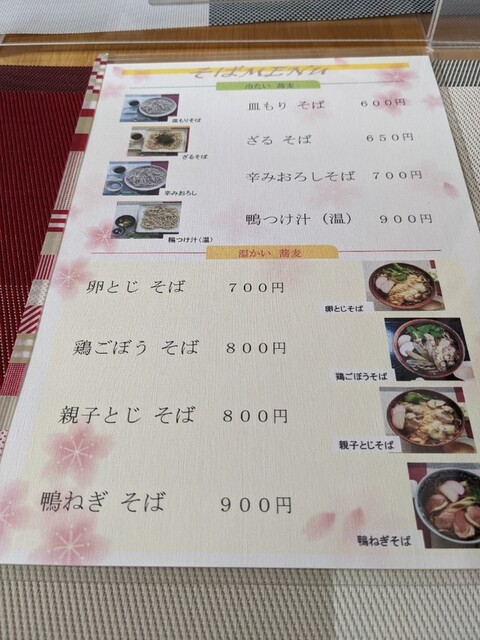 そばMENU
冷たい 蕎麦
皿もり そば 600円
皿もりそば
ざる そば 650円
ざるそば
辛みおろしそば 700円
辛みおろし
鴨つけ汁（温） 900円
鴨つけ汁（温）
温かい 蕎麦
卵とじ そば 700円
卵とじそば
鶏ごぼう そば 800円
鶏ごぼうそば
親子とじ そば 800円
親子とじそば
鴨ねぎ そば 900円
鴨ねぎそば